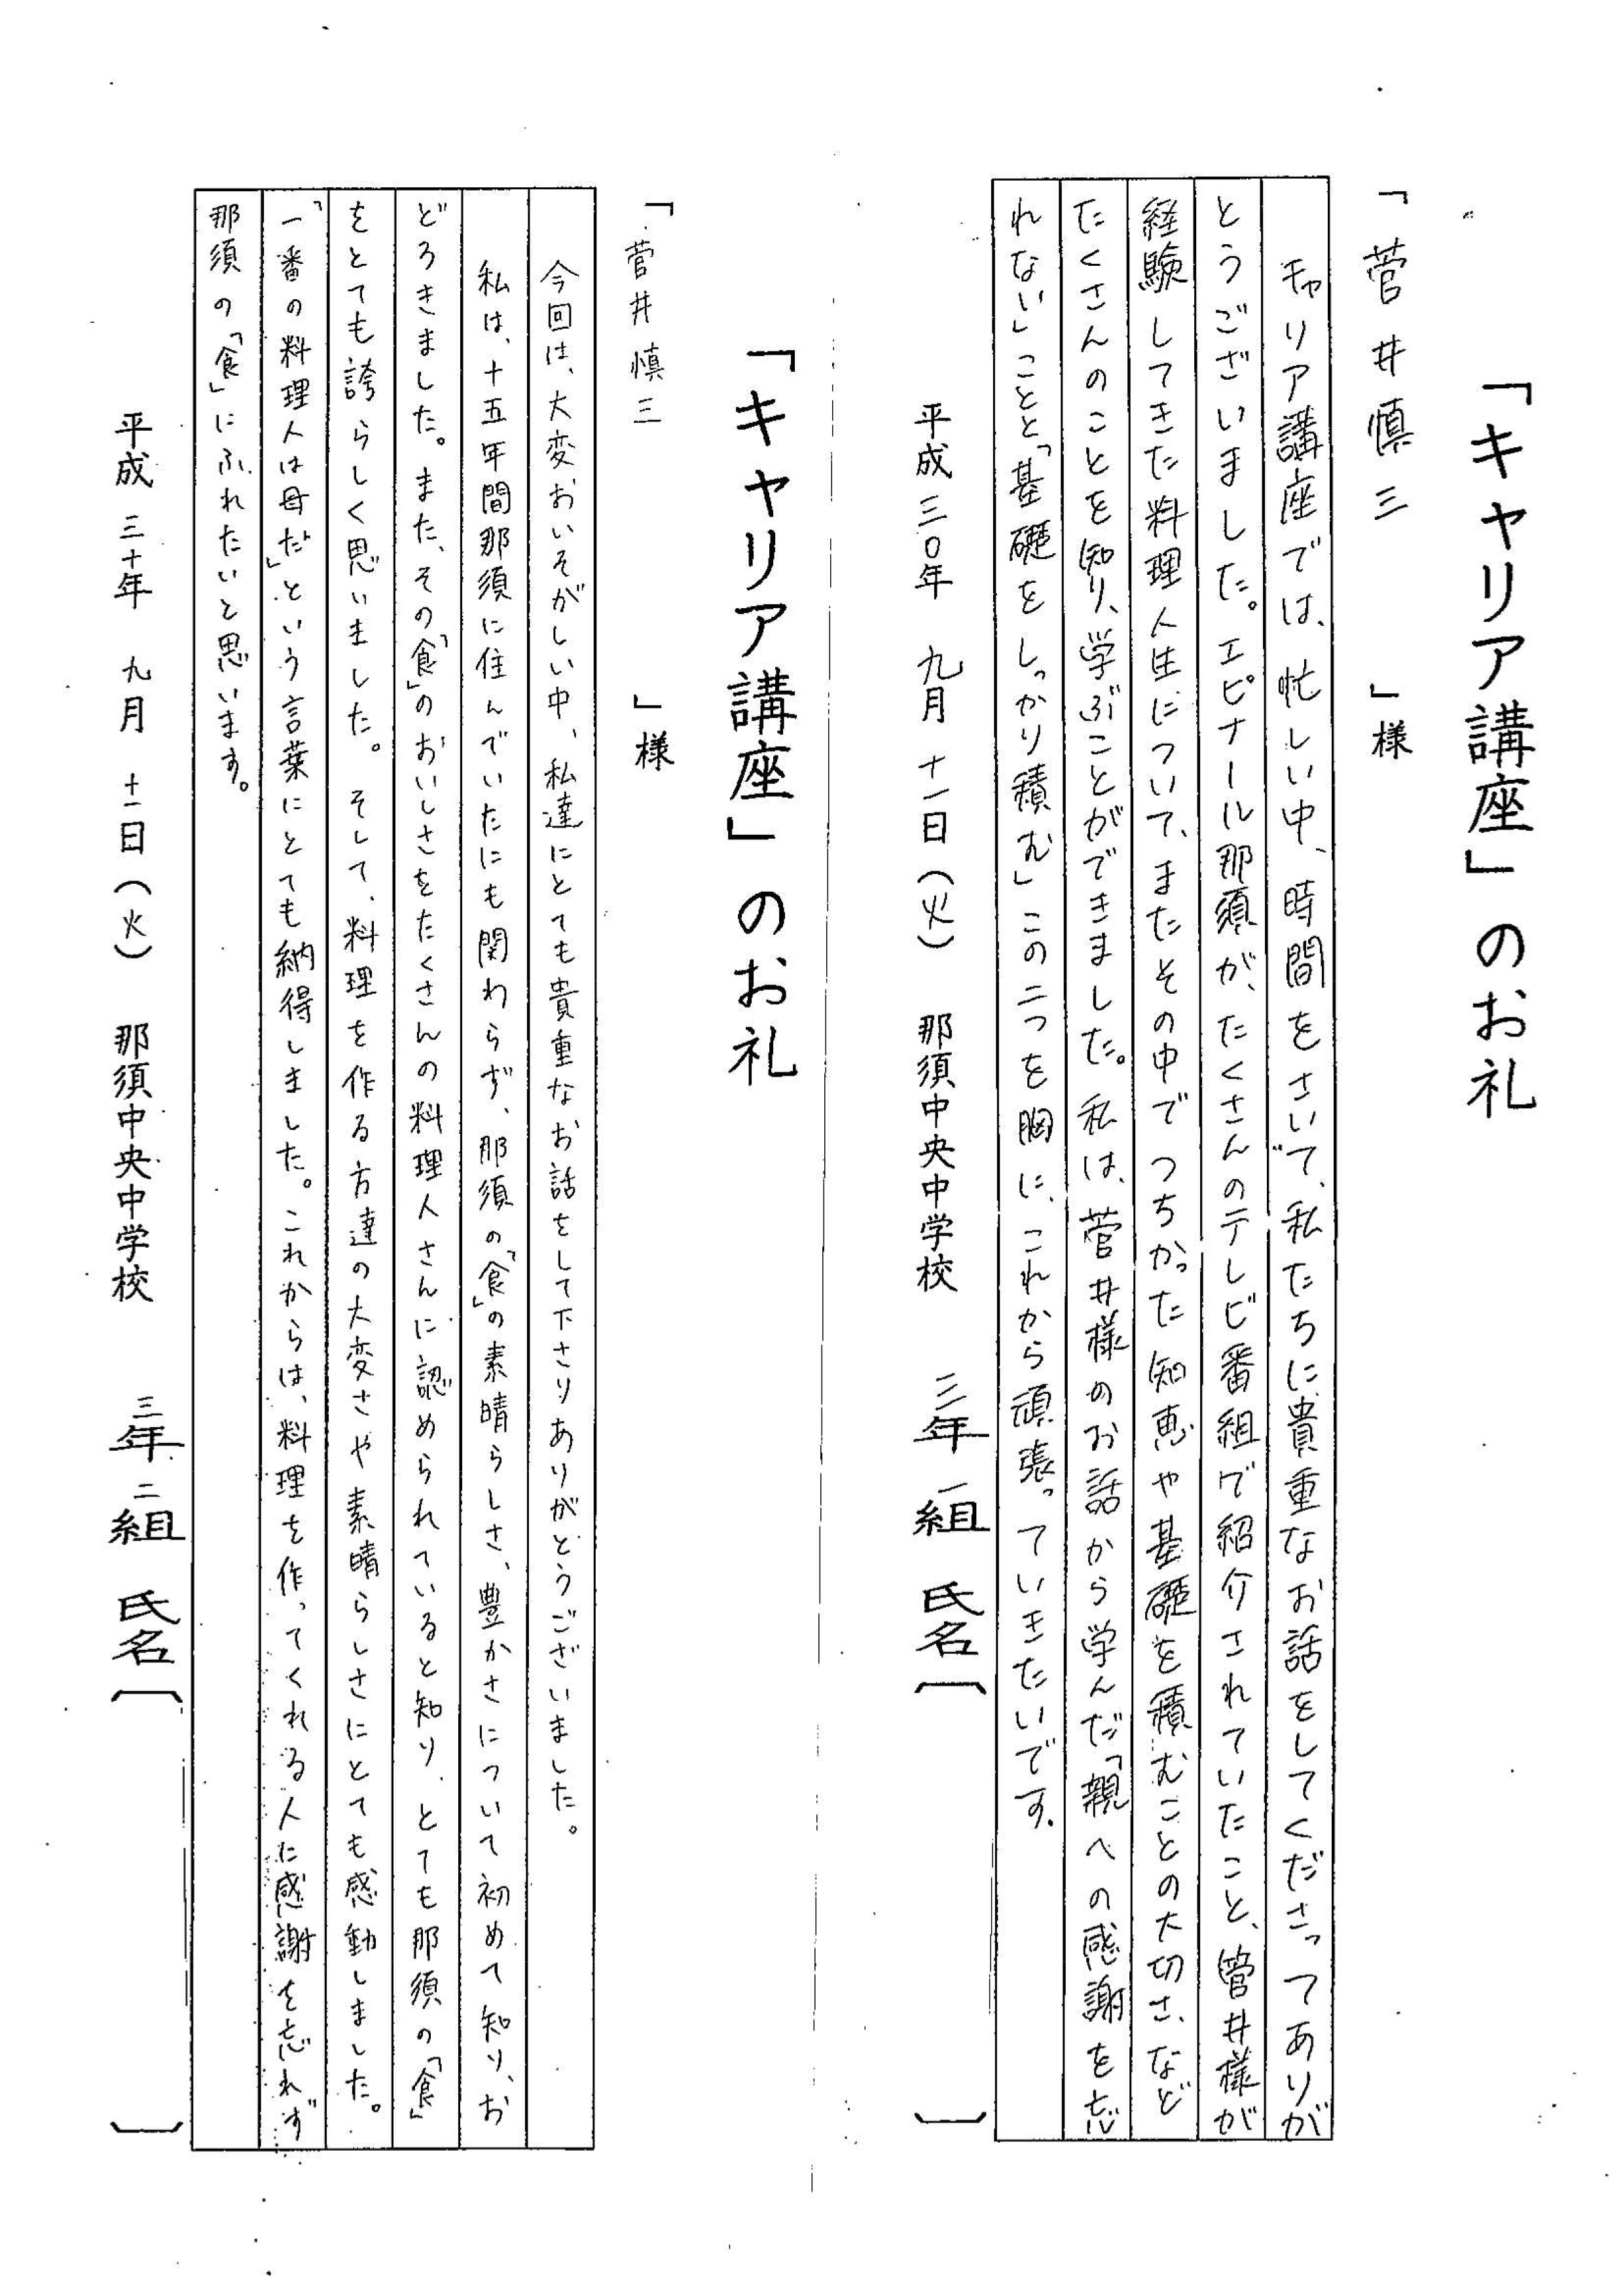 「キャリア講座」のお礼
「菅井慎三　」様
キャリア講座では、忙しい中、時間をさいて、私たちに貴重なお話をしてくださってありが
とうございました。エピナール那須が、たくさんのテレビ番組で紹介されていたこと、管井様が
経験してきた料理人生について、またその中でつちかった知恵や基礎を積むことの大切さ、など
たくさんのことを知り、学ぶことができました。私は、菅井様のお話から学んだ「親への感謝を忘
れない」ことと「基礎をしっかり積む」この二つを胸に、これから頑張っていきたいです。
平成三〇年　九月　十一日（火）　那須中央中学校　三年一組　氏名〔　〕
「キャリア講座」のお礼
「菅井慎三　」様
今回は、大変おいそがしい中、私達にとても貴重なお話をして下さりありがとうございました。
私は、十五年間那須に住んでいたにも関わらず、那須の「食」の素晴らしさ、豊かさについて初めて知り、お
どろきました。また、その「食」のおいしさをたくさんの料理人さんに認められていると知り、とても那須の「食」
をとても誇らしく思いました。そして、料理を作る方達の大変さや素晴らしさにとても感動しました。
「一番の料理人は母だ」という言葉にとても納得しました。これからは、料理を作ってくれる人に感謝を忘れず
那須の「食」にふれたいと思います。
平成三十年　九月　十一日（火）　那須中央中学校　三年二組　氏名〔　〕